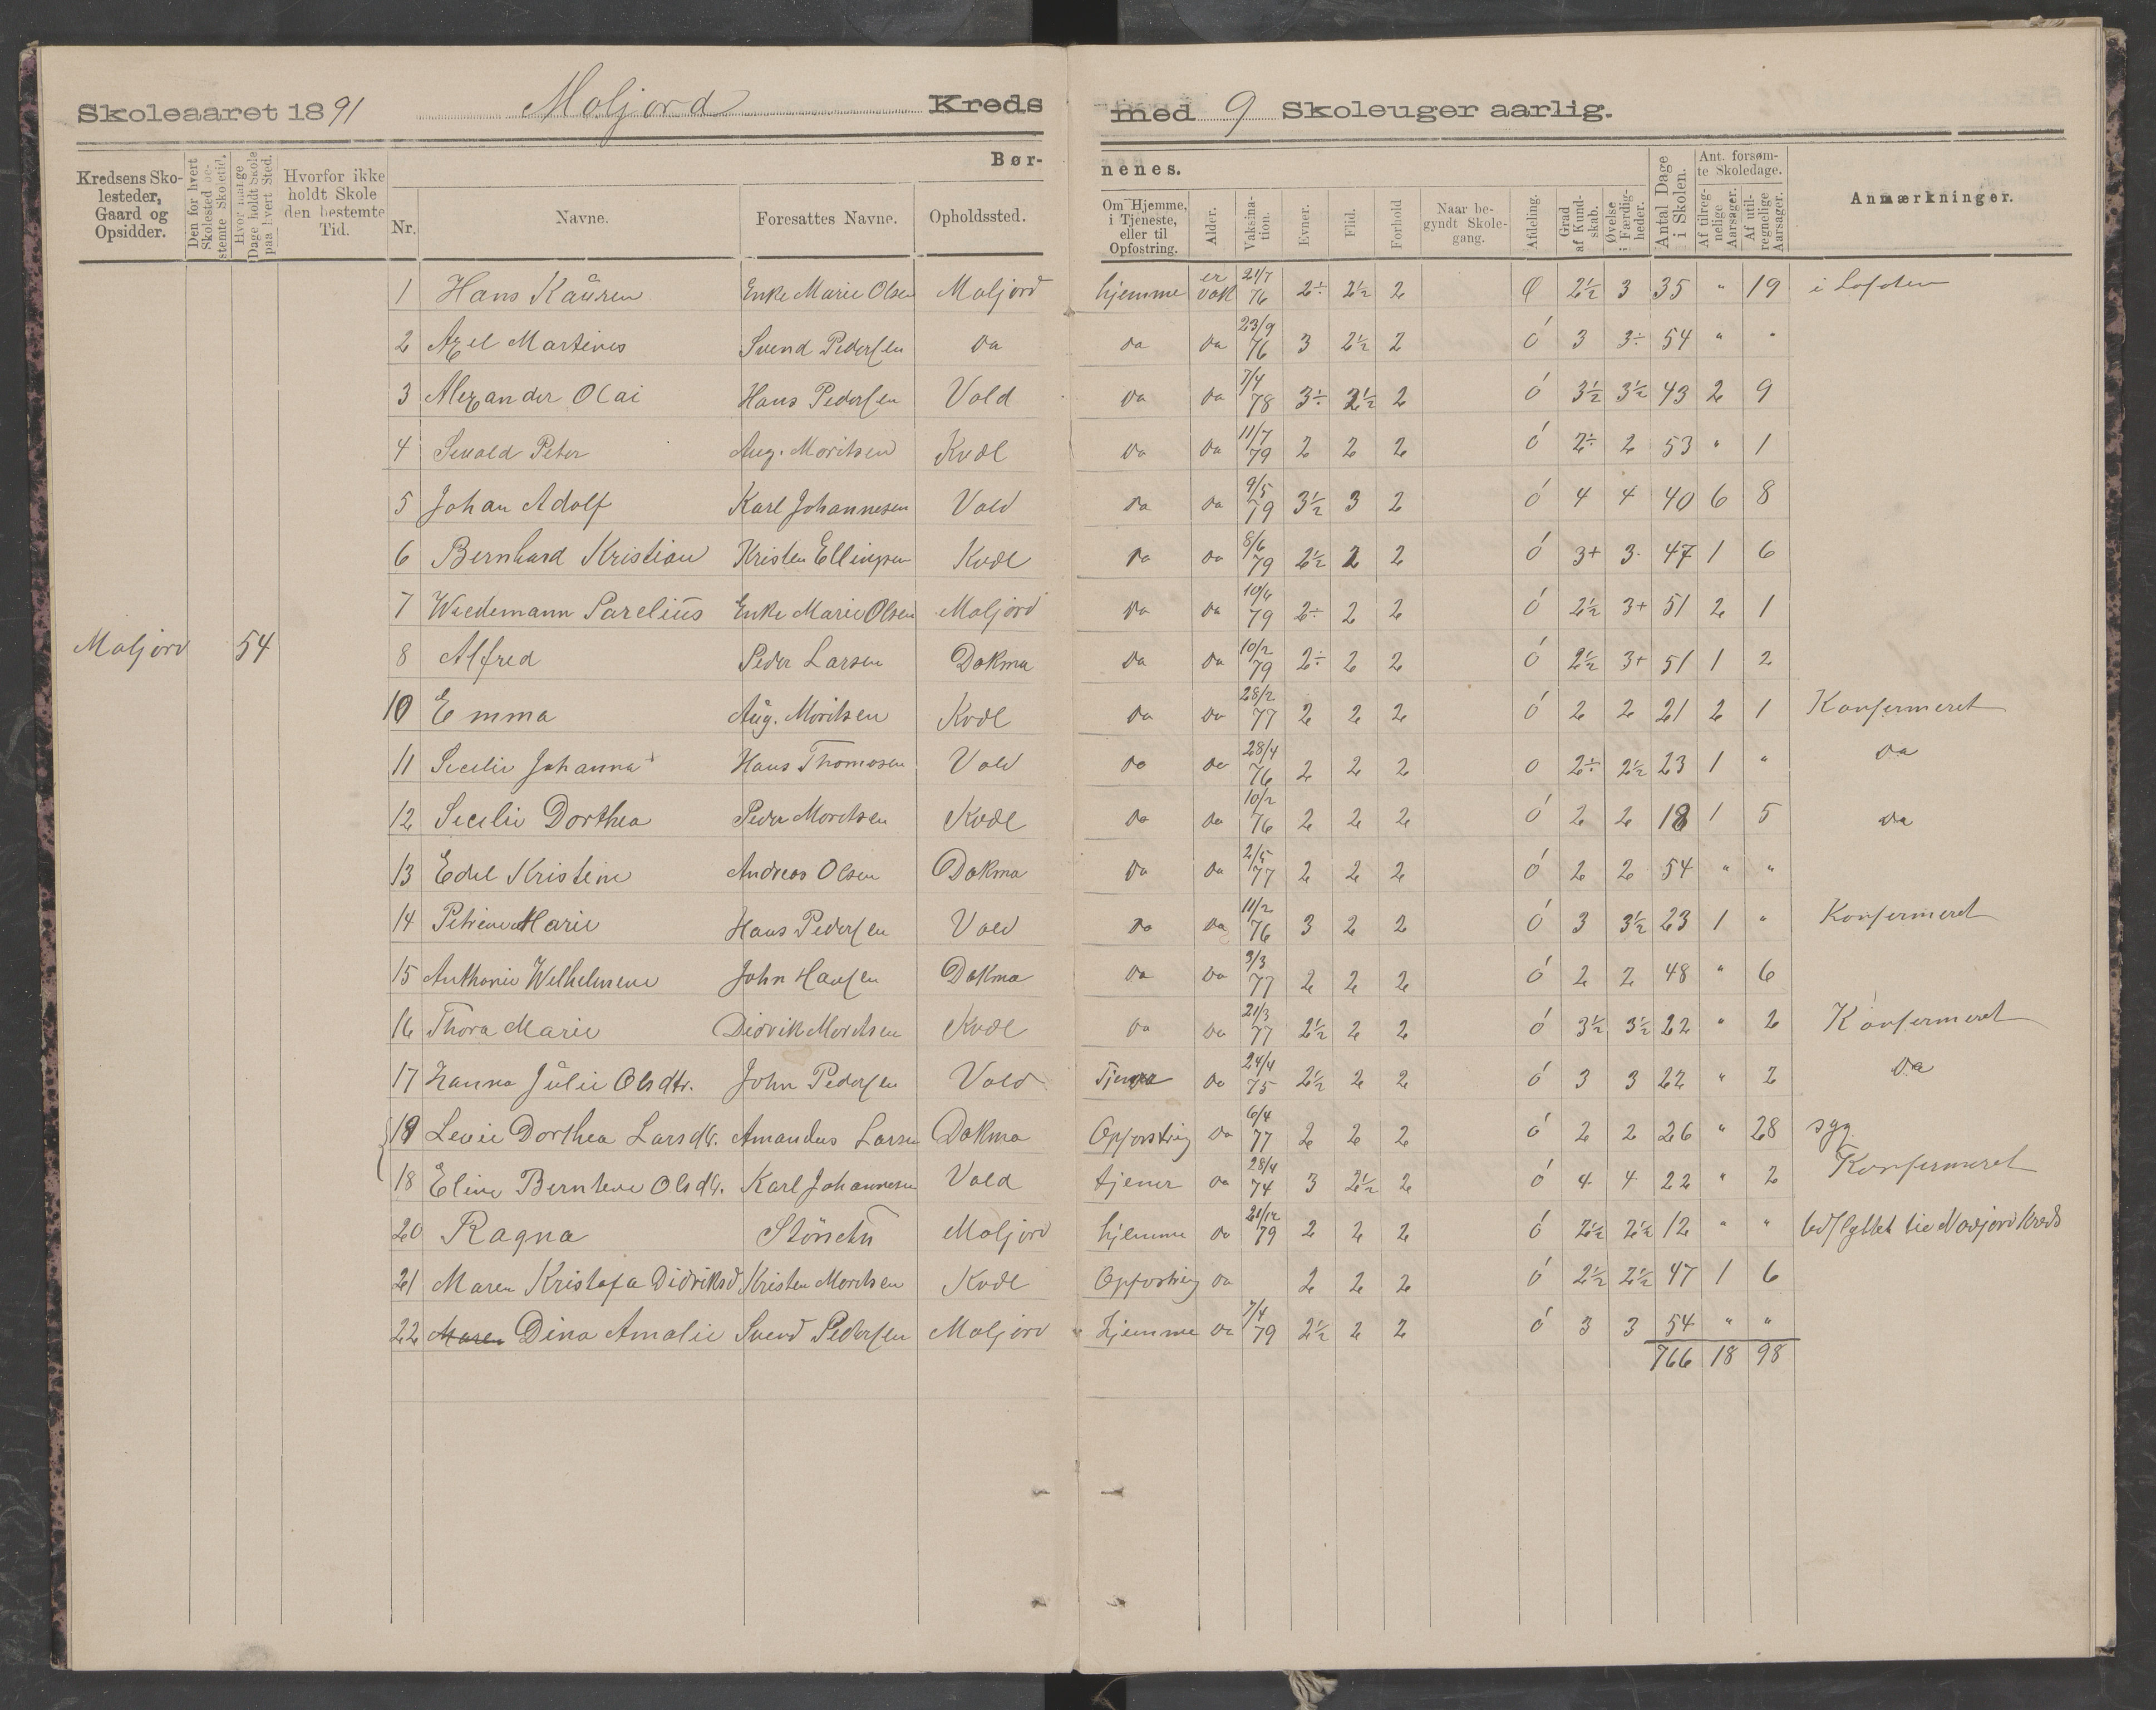 Skoleaaret 1891 Moljord Kreds med 9 Skoleuger aarlig.
Kredsens Skolesteder, Gaard og Opsidder. Den for hvert Skolested bestemte Skoletid. Hvor mange Dage holdt Skole paa hvert Sted. Hvorfor ikke holdt Skole den bestemte Tid. Bør-nenes. Ant. forsømte Skoledage.
Nr. Navne. Foresattes Navne. Opholdssted. Om Hjemme, i Tjeneste, eller til Opfostring. Alder. Vaksination. Evner. Flid. Forhold Naar begyndt Skolegang. Afdeling. Grad af Kundskab. Øvelse i Færdigheder. Antal Dage i Skolen. Af tilregnelige Aarsager. Af utilregnelige Aarsager. Anmærkninger.
1 Hans Kaüren Enke Marie Olsen Moljord hjemme er vak 21/7 76 2÷ 2½ 2 Ø 2½ 3 35 " 19 i Lofoten
2 Axel Martines Svend Pedersen da da da 23/9 76 3 2½ 2 ó 3 3÷ 54 " "
3 Alexander Olai Hans Pedersen Vold da da 7/4 78 3÷ 2½ 2 ó 3½ 3½ 43 2 9
4 Sevald Peter Aug. Moritsen Kvæl da da 11/7 79 2 2 2 ó 2÷ 2 53 " 1
5 Johan Adolf Karl Johannesen Vold da da 9/5 79 3½ 3 2 ó 4 4 40 6 8
6 Bernhard Kristian Kristen Ellingsen Kvæl da da 8/6 79 2½ 2 2 ó 3+ 3- 47 1 6
7 Wedemann Parelius Enke Marie Olsen Moljord da da 10/6 79 2÷ 2 2 ó 2½ 3+ 51 2 1
Moljord 54 8 Alfred Peder Larsen Dokma da da 10/2 79 2÷ 2 2 ó 2½ 3+ 51 1 2
10 Emma Aüg. Moritsen Kvæl da da 28/2 77 2 2 2 ó 2 2 21 2 1 Konfermeret
11 Secelie Johanna Hans Thomesen Vold da da 28/4 76 2 2 2 o 2÷ 2½ 23 1 " da
12 Secelie Dorthea Peder Moritsen Kvæl da da 10/2 76 2 2 2 ó 2 2 18 1 5 da
13 Edel Kristine Andreas Olsen Dokma da da 2/5 77 2 2 2 ó 2 2 54 " "
14 Petrine Marie Hans Pedersen Vold da da 11/2 76 3 2 2 ó 3 3½ 23 1 " Konfermeret
15 Anthonie Wilhelmene John Hansen Dokma da da 3/3 77 2 2 2 ó 2 2 48 " 6
16 Thora Marie Didrik Moritsen Kvæl da da 21/3 77 2½ 2 2 ó 3½ 3½ 22 " 2 Konfermeret
17 Hanna Jülie Olsdtr. John Pedersen Vold Tjener da 24/4 75 2½ 2 2 ó 3 3 22 " 2 da
19 Levie Dorthea Larsdtr. Amandus Larsen Dokma Opfostring da 6/4 77 2 2 2 ó 2 2 26 " 28 syg.
18 Eline Berntene Olsdtr. Karl Johannesen Vold tjener da 28/4 74 3 2½ 2 ó 4 4 22 " 2 Konfermeret
20 Ragna Moljord hjemme da 21/12 79 2 2 2 ó 2½ 2½ 12 " " Udflyttet til Kreds
21 Maren Kristofa Didriksd Kristen Moritsen Kvæl Opfostring da 2 2 2 ó 2½ 2½ 47 1 6
22 Maren Dina Amalie Svend Pedersen Moljord " hjemme da 7/4 79 2½ 2 2 ó 3 3 54 " "
766 18 98